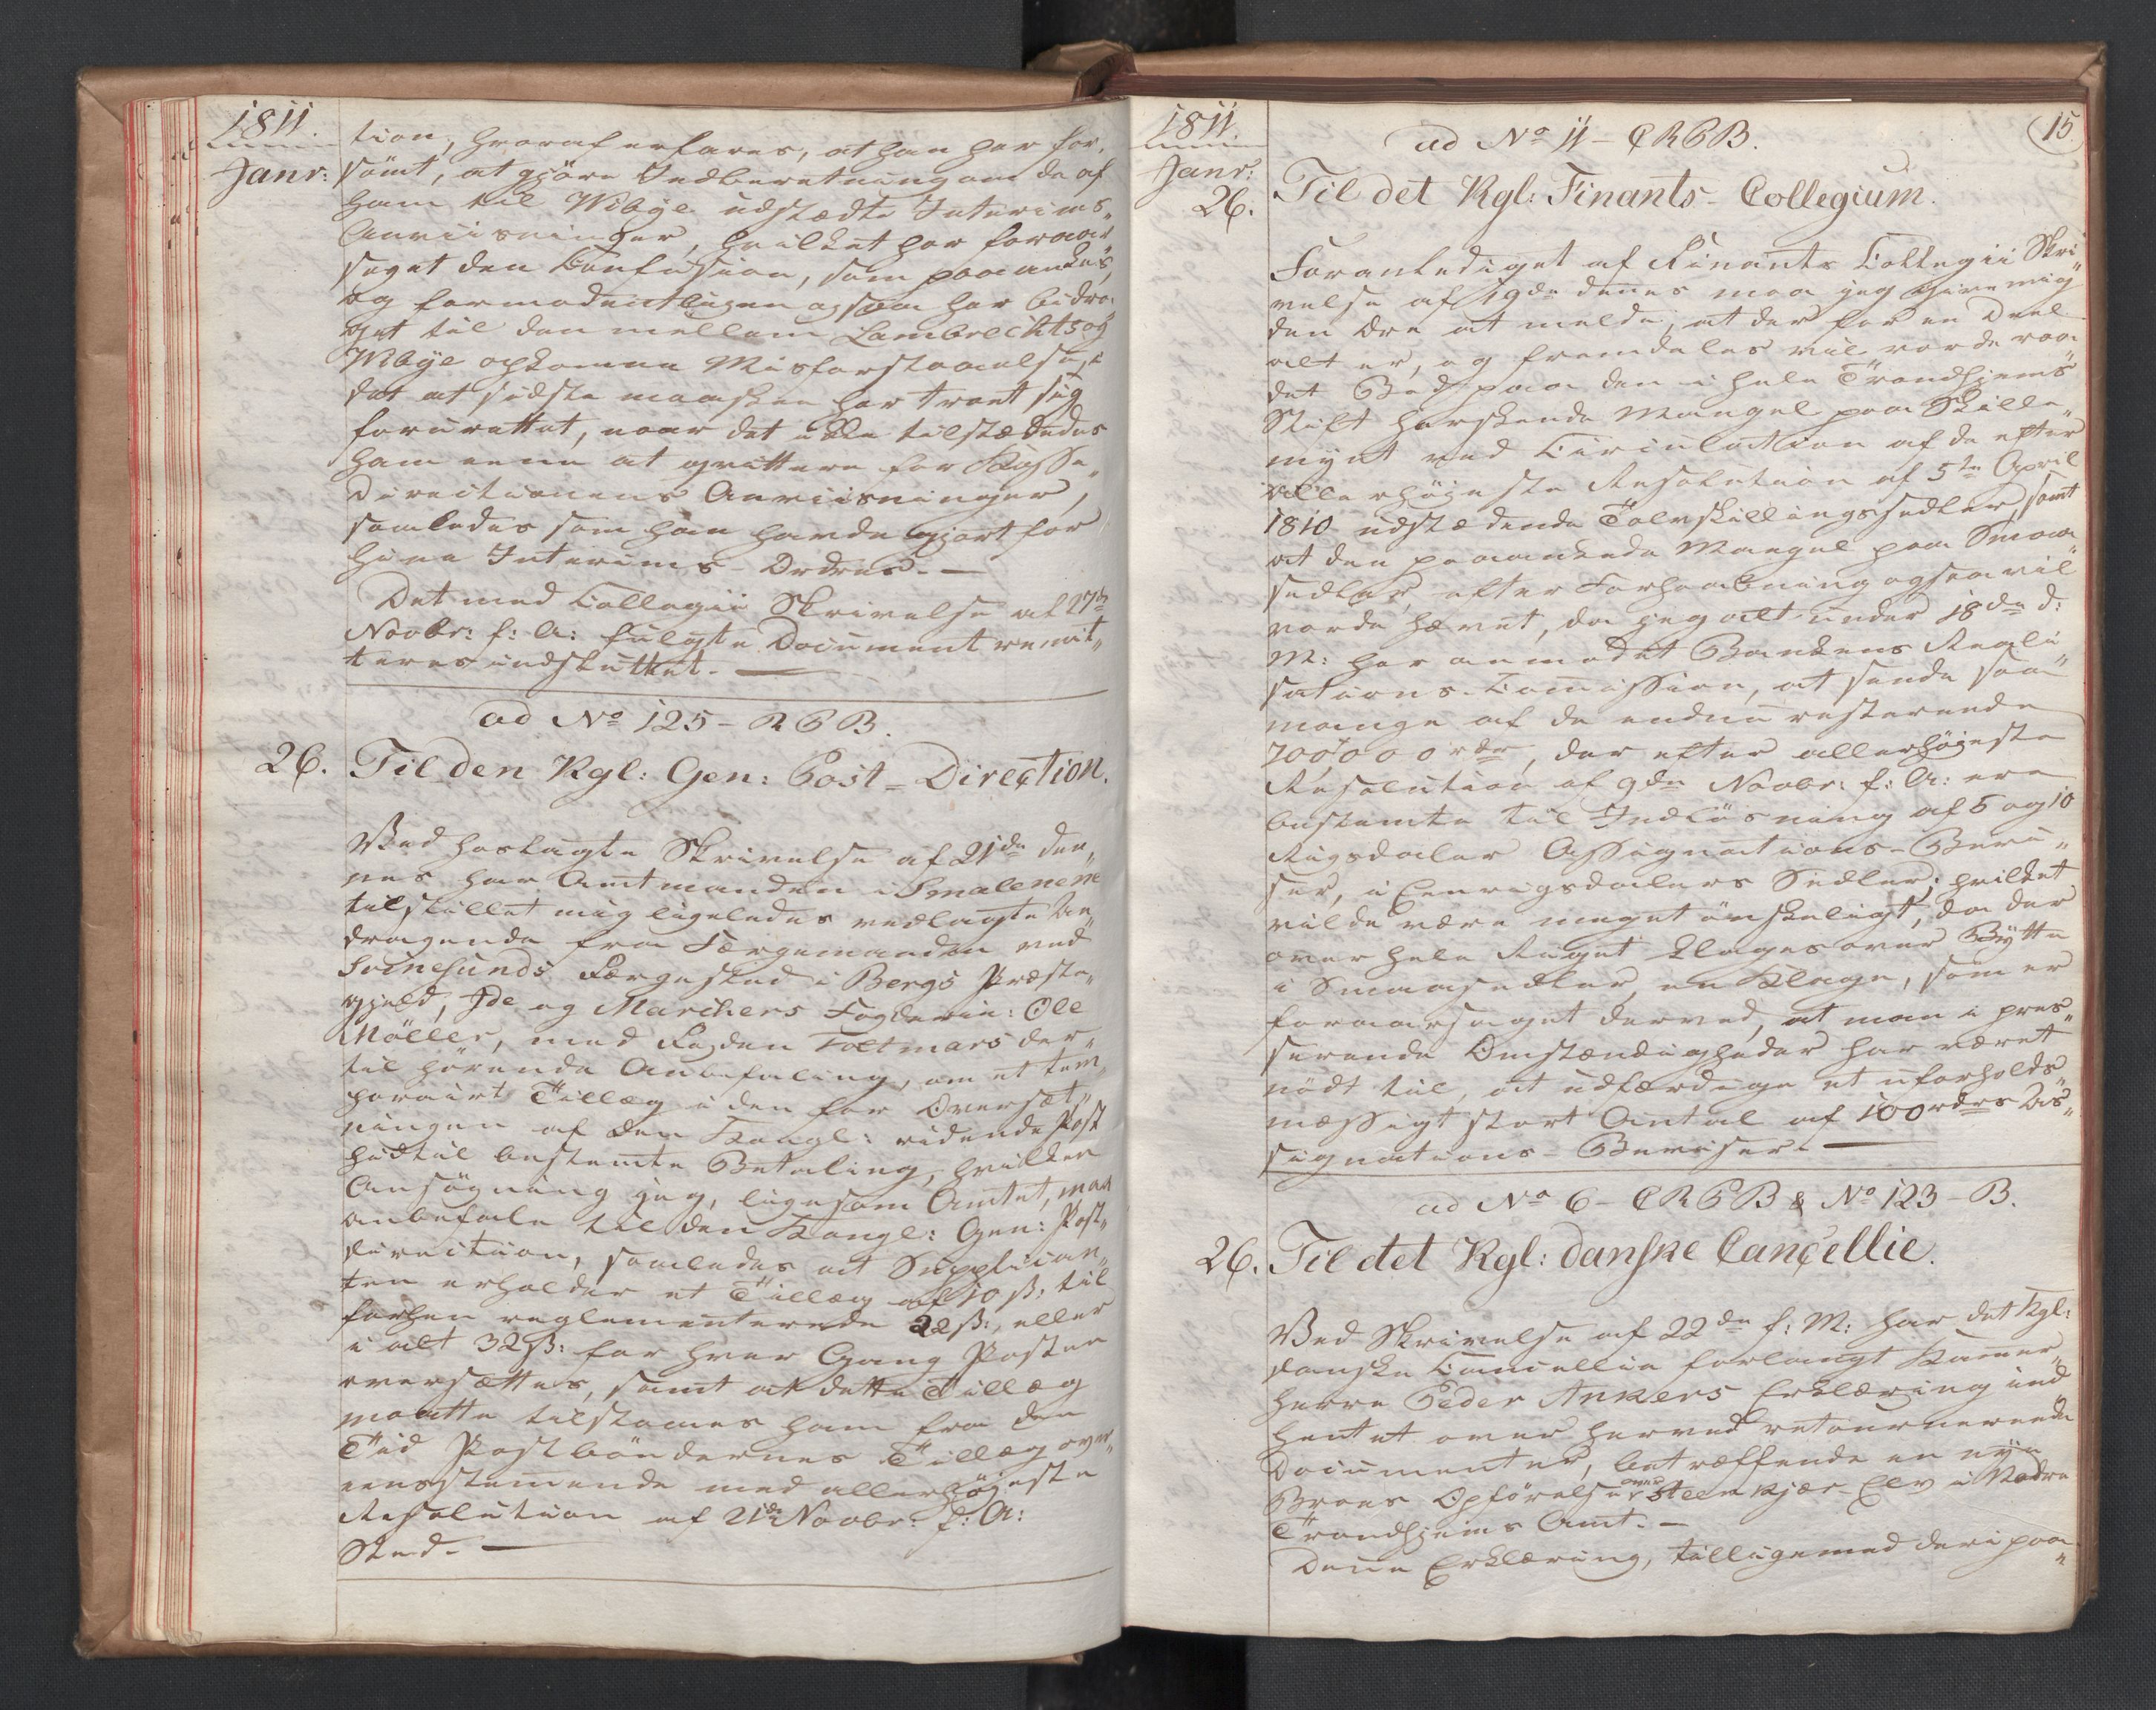 1811.
Janr:
tion, hvoraf erfares, at han har for„
sömt, at gjöre Indberetning om de af
ham til Wibÿe udstædte Interims„
Anviisninger, hvilket har foraar„
saget den Confusion, som paaankes,
og formodentligen ogsaa har bidra„
get til den mellem Lambrechts og
Wibÿe opkomne Misforstaaelse, i
det at sidste maaskee har troet sig
forurettet, naar det ikke tilstædedes
ham eene at qvittere for Casse„
Directionens Anviisninger,
saaledes som han havde gjort for
hine Interims-Ordres. —
Det med Collegii Skrivelse af 27de
Novbr: f: A: fulgte Document remit„
teres indsluttet. —
ad No 125 - R C B.
26. Til den Kgl: Gen: Post-Direction.
Ved hoslagte Skrivelse af 21de den„
nes har Amtmanden i Smalenene
tilstillet mig ligeledes vedlagte An„
dragende fra Færgemanden ved
Svinesunds Færgested i Bergs Præste„
gjeld, Ide og Marchers Fogderie: Ole
Möller, med Fogden Toltmars der„
til hörende Anbefaling, om et tem„
porairt Tillæg i den for Oversæt„
ningen af den Kongl: ridende Post
hidtil bestemte Betaling, hvilken
Ansögning jeg, ligesom Amtet, maa
anbefale til den Kongl: Gen: Post„
direction, saaledes at Supplican„
ten erholder et Tillæg af 10 ß: til
forhen reglementerede 22 ß:, eller
i alt 32 ß: for hver Gang Posten
oversættes, samt at dette Tillæg
maatte tilstaaes ham fra den
Tid Postböndernes Tillæg over„
eensstemmende med allerhöjeste
Resolution af 21de Novbr: f: A:
Sted. —
15
1811.
Janr:
26.
ad No 11 - C R C B.
Til det Kgl: Finants-Collegium.
Foranlediget af Finants Collegii Skri„
velse af 19de dennes maa jeg give mig
den Ære at melde, at der for en Deel
alt er, og fremdeles vil vorde raa„
det Bod paa den i hele Trondhjems
Stift herskende Mangel paa Skille„
mynt ved Circulation af de efter
allerhöjeste Resolution af 5te April
1810 udstædende Tolvskillingssedler, samt
at den paaankede Mangel paa Smaa„
sedler, efter Forhaabning ogsaa vil
vorde hævet, da jeg alt under 18de d:
M: har anmodet Bankens Reali„
sations-Comission, at sende saa
mange af de endnu resterende
700,000 rdr, der efter allerhöjeste
Resolution af 9de Novbr: f: A: ere
bestemte til Indlösning af 5 og 10
Rigsdaler Assignations-Bevi„
ser, i Eenrigsdalers Sedler; hvilket
vilde være meget önskeligt, da der
over hele Riget klages over Bÿtte
i Smaasedler, en Klage, som er
foraarsaget derved, at man i pres„
serende Omstændigheder har været
nödt til, at udfærdige et uforholds„
mæssigt stort Antal af 100 rdrs As„
signations-Beviser. —
ad No 6 - C R C B & No 123 - B.
26. Til det Kgl: danske Cancellie.
Ved Skrivelse af 22de f: M: har det Kgl:
danske Cancellie forlangt Kamer„
herre Peder Ankers Erklæring ind„
hentet over herved retournerende
Documenter, betræffende en nÿe
Broes Opförelse over Steenkjær-Elv i Nordre
Trondhjems Amt. —
Denne Erklæring, tilligemed deri paa„